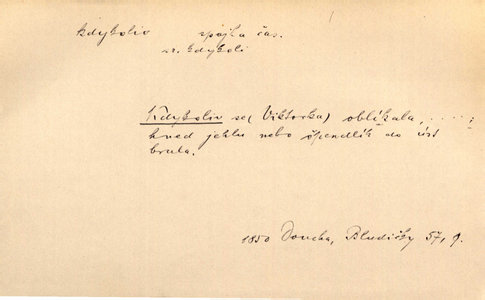 kdykoliv spojka čas.
sr. kdykoli
Kdykoliv se (Viktorka) oblíkala, .....,
hned jehlu nebo špendlík do úst
brala.
1850 Doucha, Bludičky 57, 9.